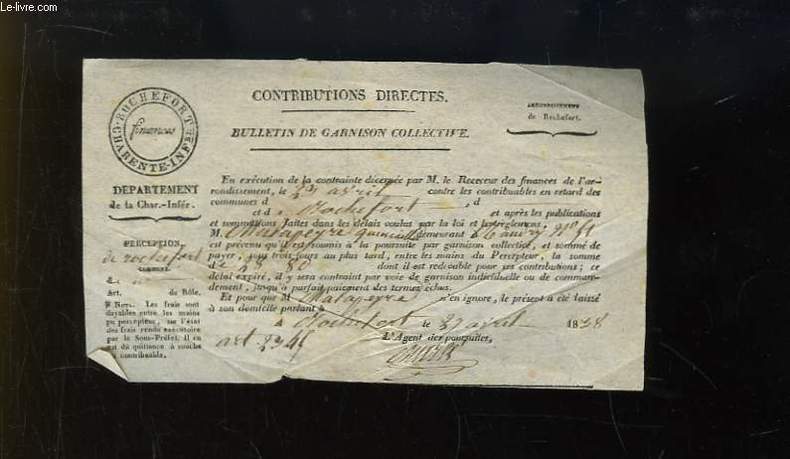 Le-livre.com
ROCHEFORT
finances
CHARENTE-INFRE.
DÉPARTEMENT
de la Char.-Infér.
PERCEPTION
de rochefort
COMMUNE
d
Art. de Rôle.
Nota. Les frais sont
payables entre les mains
du percepteur, sur l'état
des frais rendu exécutoire
par le Sous-Préfet, il en
est dû quittance à souche
au contribuable.
CONTRIBUTIONS DIRECTES.
BULLETIN DE GARNISON COLLECTIVE.
ARRONDISSEMENT
de Rochefort.
En exécution de la contrainte décernée par M. le Receveur des finances de l'ar-
rondissement, le 27 avril contre les contribuables en retard des
communes d , d
et d Rochefort et après les publications
et sommations faites dans les délais voulus par la loi et les règlemens,
M. demeurant à
est prévenu qu'il est soumis à la poursuite par garnison collective, et sommé de
payer, sous trois jours au plus tard, entre les mains du Percepteur, la somme
de 28 80 dont il est redevable pour ses contributions; ce
délai expiré, il y sera contraint par voie de garnison individuelle ou de comman-
dement, jusqu'à parfait paiement des termes échus.
Et pour que M. Malapeyre n'en ignore, le présent a été laissé
à son domicile parlant à
à Rochefort le 27 avril 1838
art. 2346 L'Agent des poursuites,